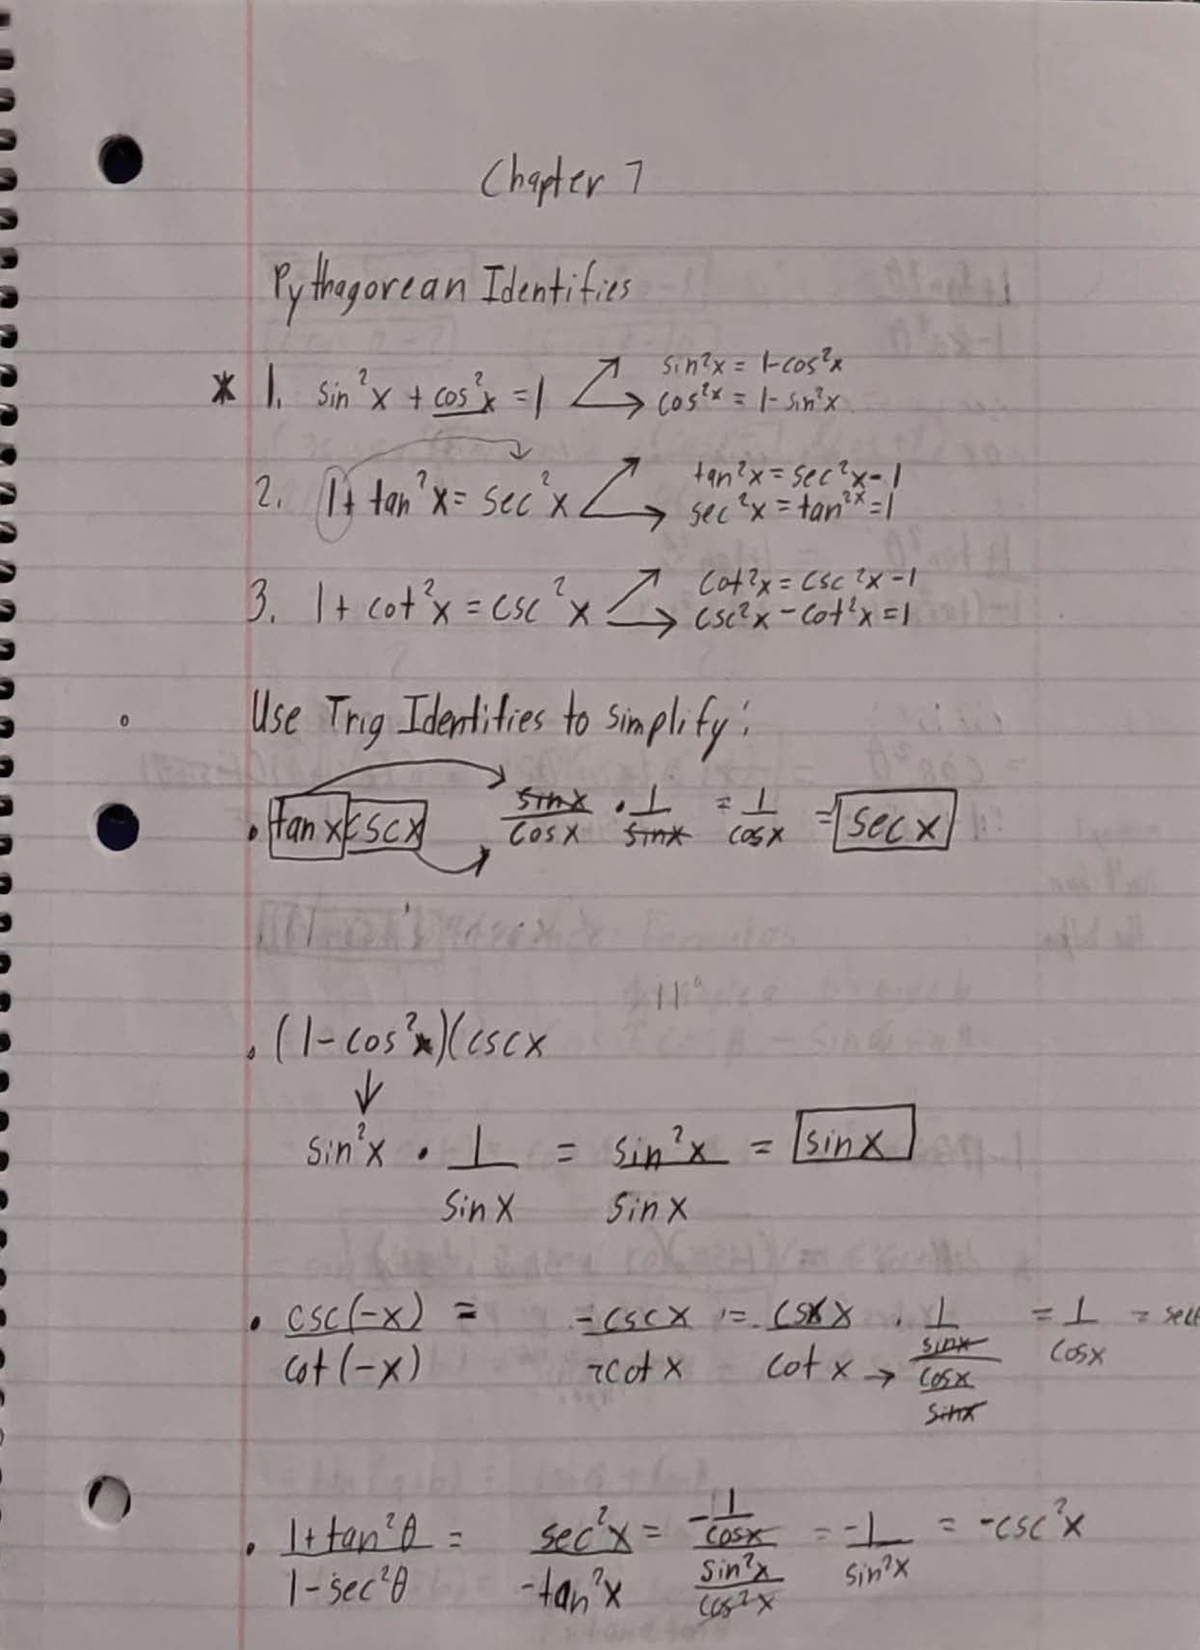 Chapter 7
Pythagorean Identifies
* 1. sin²x + cos²x = 1 sin²x = 1-cos²x
cos²x = 1-sin²x
2. 1+ tan²x = sec²x tan²x = sec²x-1
sec²x = tan²x=1
3. 1+ cot²x = csc²x cot²x = csc²x-1
csc²x - cot²x = 1
Use Trig Identities to simplify:
• tanx cscx sinx/cosx • 1/sinx = 1/cosx = secx
• (1-cos²x)(cscx
↓
sin²x • 1/sinx = sin²x/sinx = sinx
• csc(-x)/cot(-x) = -cscx/-cotx = cscx/cotx → • (1/sinx)/(cosx/sinx) = 1/cosx =
• 1+tan²θ/1-sec²θ = sec²x/-tan²x = (-1/cosx)/(sin²x/cos²x) = -1/sin²x = -csc²x